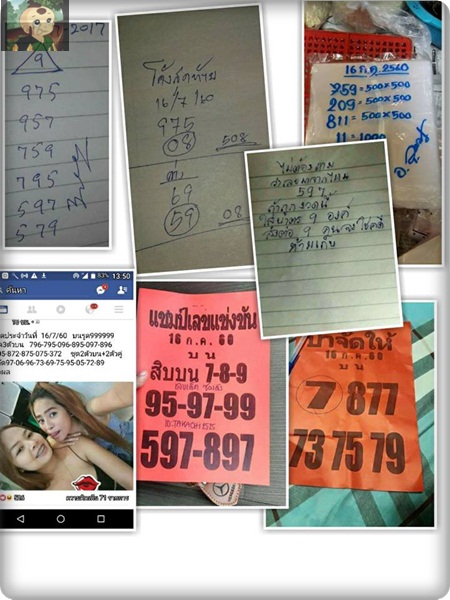 2017
9
975
957
759
795
597
579
โค้งสุดท้าย
16/7/60
975
08 508
ล่าง
69
59 08
16 ก.ค. 2560
259 = 500×500
209 = 500×500
811 = 500×500
11 = 1000
ไม่ต้องถาม
ว่าเลขมาจากไหน
597
ถ้าถูกงวดนี้
9 องค์
ส่งต่อ 9 คนจะโชคดี
ห้ามเก็บ
83% 13:50
ค้นหา
ประจำวันที่ 16/7/60 บนรูด999999
3ตัวบน 796-795-096-895-097-896
95-872-875-075-372 ชุด2ตัวบน+2ตัวคู่
97-06-96-73-69-75-95-05-72-89
แชมป์เลขแข่งขัน
16 ก.ค. 60
บน
สิบบน 7-8-9
95-97-99
597-897
16 ก.ค. 60
บน
7 877
73 75 79